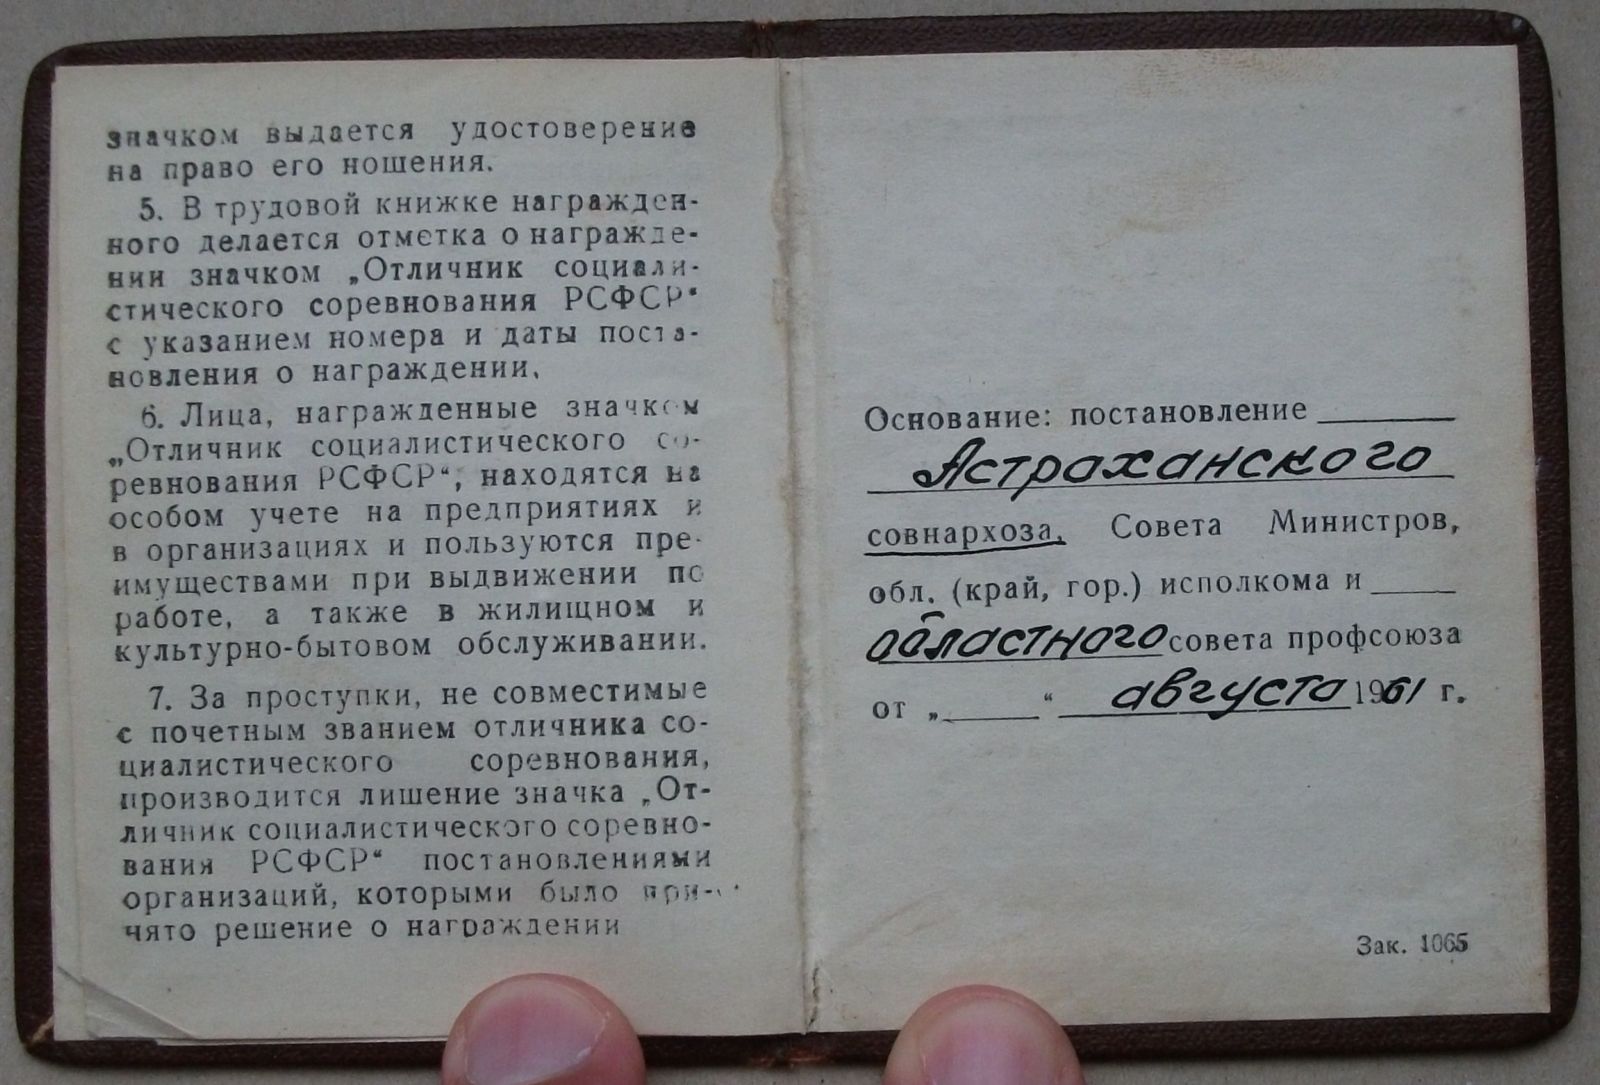 значком выдается удостоверение
на право его ношения.
5. В трудовой книжке награжден-
ного делается отметка о награжде-
нии значком „Отличник социали-
стического соревнования РСФСР“
с указанием номера и даты поста-
новления о награждении.
6. Лица, награжденные значком
„Отличник социалистического со-
ревнования РСФСР“, находятся на
особом учете на предприятиях и
в организациях и пользуются пре-
имуществами при выдвижении по
работе, а также в жилищном и
культурно-бытовом обслуживании.
7. За проступки, не совместимые
с почетным званием отличника со-
циалистического соревнования,
производится лишение значка „От-
личник социалистического соревно-
вания РСФСР“ постановлениями
организаций, которыми было при-
нято решение о награждении
Основание: постановление
Астраханского
совнархоза, Совета Министров,
обл. (край, гор.) исполкома и
областного совета профсоюза
от „ “ августа 1961 г.
Зак. 1065